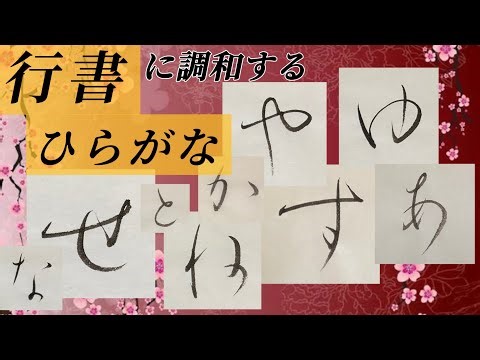 行書に調和する
ひらがな
や
ゆ
か
と
せ
す
あ
な